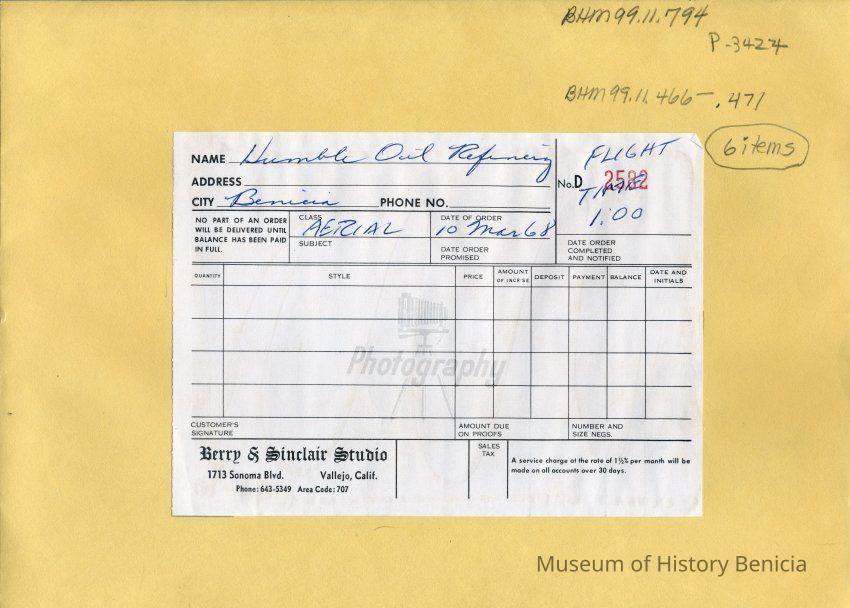 BHM99.11.794
P-3427
BHM99.11.466-.471
6 items
NAME Humble Oil Refinery
FLIGHT
ADDRESS
No. D 2582
TIME
CITY Benicia PHONE NO.
1:00
NO PART OF AN ORDER
WILL BE DELIVERED UNTIL
BALANCE HAS BEEN PAID
IN FULL.
CLASS
AERIAL
SUBJECT
DATE OF ORDER
10 Mar 68
DATE ORDER
PROMISED
DATE ORDER
COMPLETED
AND NOTIFIED
QUANTITY STYLE PRICE AMOUNT OF INCR'SE DEPOSIT PAYMENT BALANCE DATE AND INITIALS
Photography
CUSTOMER'S
SIGNATURE
AMOUNT DUE
ON PROOFS
NUMBER AND
SIZE NEGS.
Berry & Sinclair Studio
1713 Sonoma Blvd. Vallejo, Calif.
Phone: 643-5349 Area Code: 707
SALES
TAX
A service charge at the rate of 1½% per month will be
made on all accounts over 30 days.
Museum of History Benicia